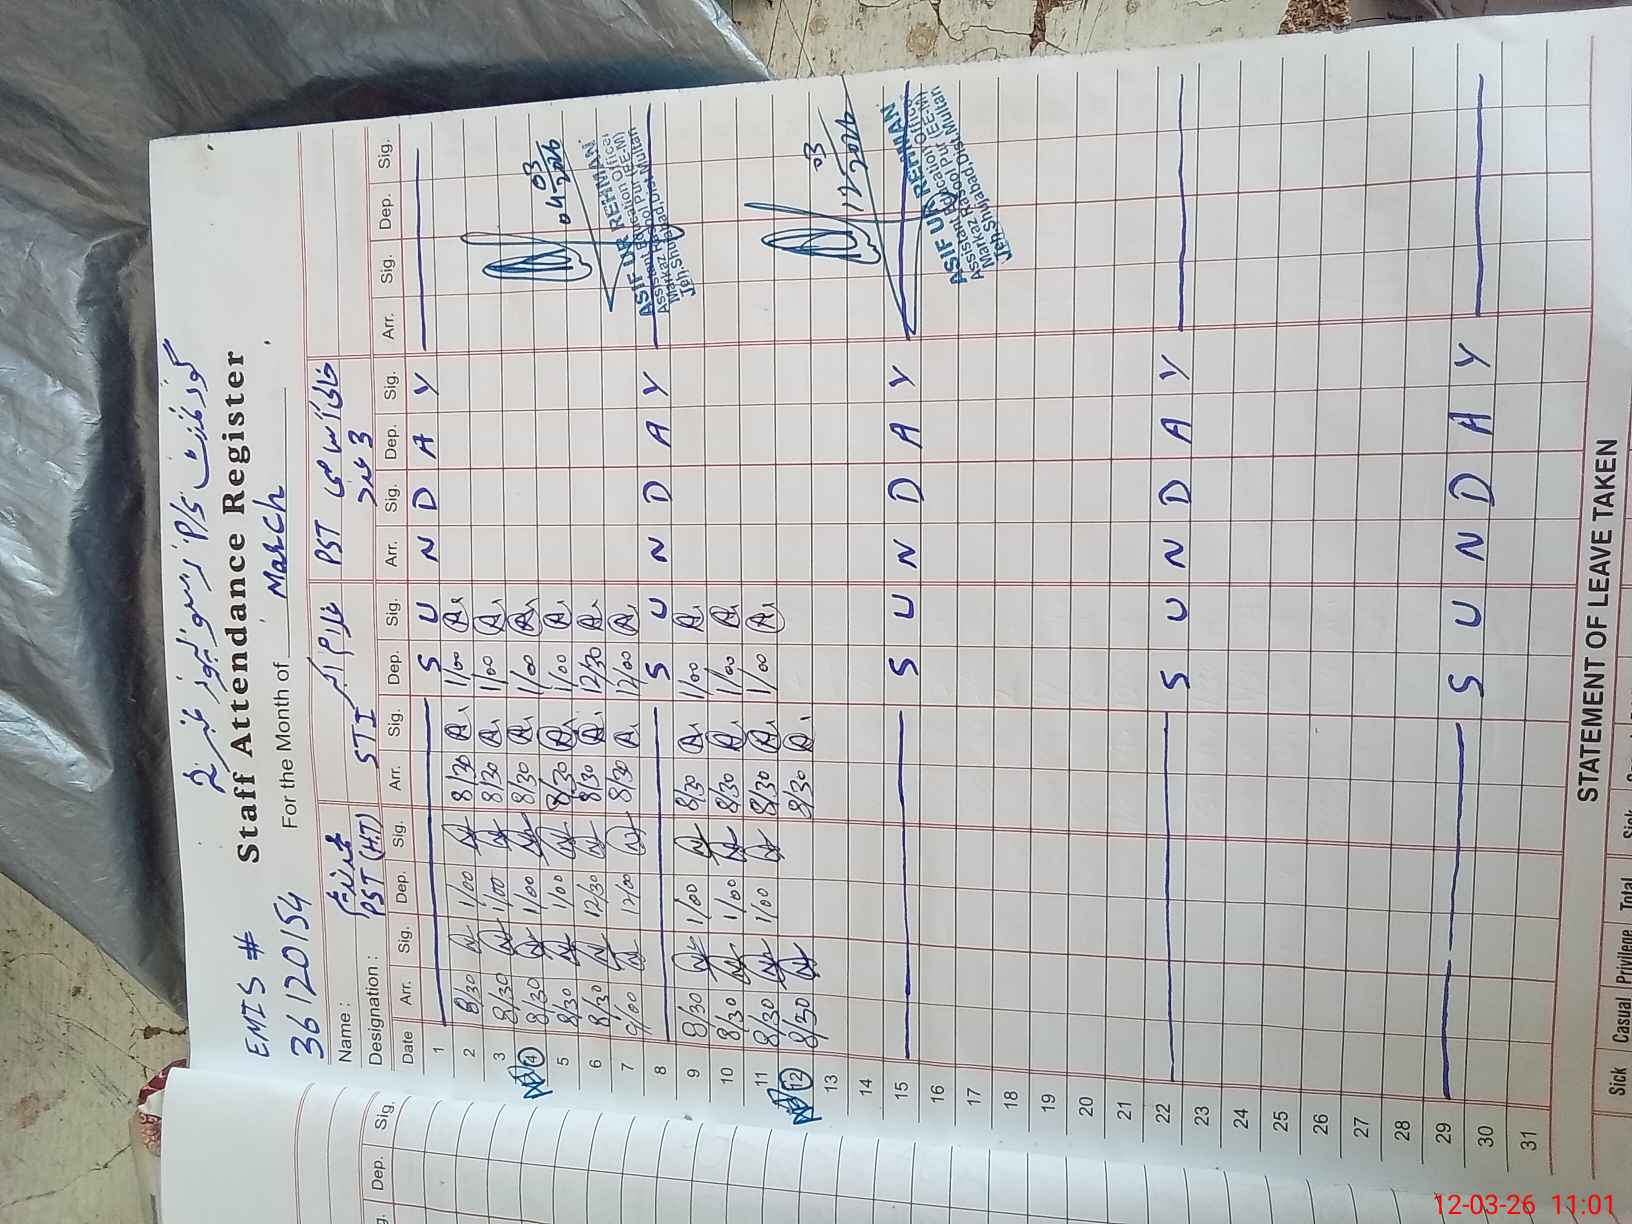 گورنمنٹ P/S رسولپور نمبر 2
EMIS #
Staff Attendance Register
36120154
For the Month of March
Name :
Designation : PST (H.T) STI PST خالی آسامی
3 عدد
Date Arr. Sig. Dep. Sig. Arr. Sig. Dep. Sig. Arr. Sig. Dep. Sig. Arr. Sig. Dep. Sig.
1 S U N D A Y
2 8/30 1/00 8/30 1/00
3 8/30 1/00 8/30 1/00
4 8/30 1/00 8/30 1/00
5 8/30 1/00 8/30 1/00
6 8/30 12/30 8/30 12/30
7 9/00 12/00 8/30 12/00
8 S U N D A Y
9 8/30 1/00 8/30 1/00
10 8/30 1/00 8/30 1/00
11 8/30 1/00 8/30 1/00
12 8/30 8/30
13
14
15 S U N D A Y
16
17
18
19
20
21
22 S U N D A Y
23
24
25
26
27
28
29 S U N D A Y
30
31
04-03-2026
ASIF UR REHMAN
Assistant Education Officer
Markaz Rasool Pur (EE-M)
Teh. Shujabad, Dist. Multan
12-03-2026
ASIF UR REHMAN
Assistant Education Officer
Markaz Rasool Pur (EE-M)
Teh. Shujabad, Dist. Multan
STATEMENT OF LEAVE TAKEN
Sick Casual Privilege Total Sick
Dep. Sig.
12-03-26 11:01